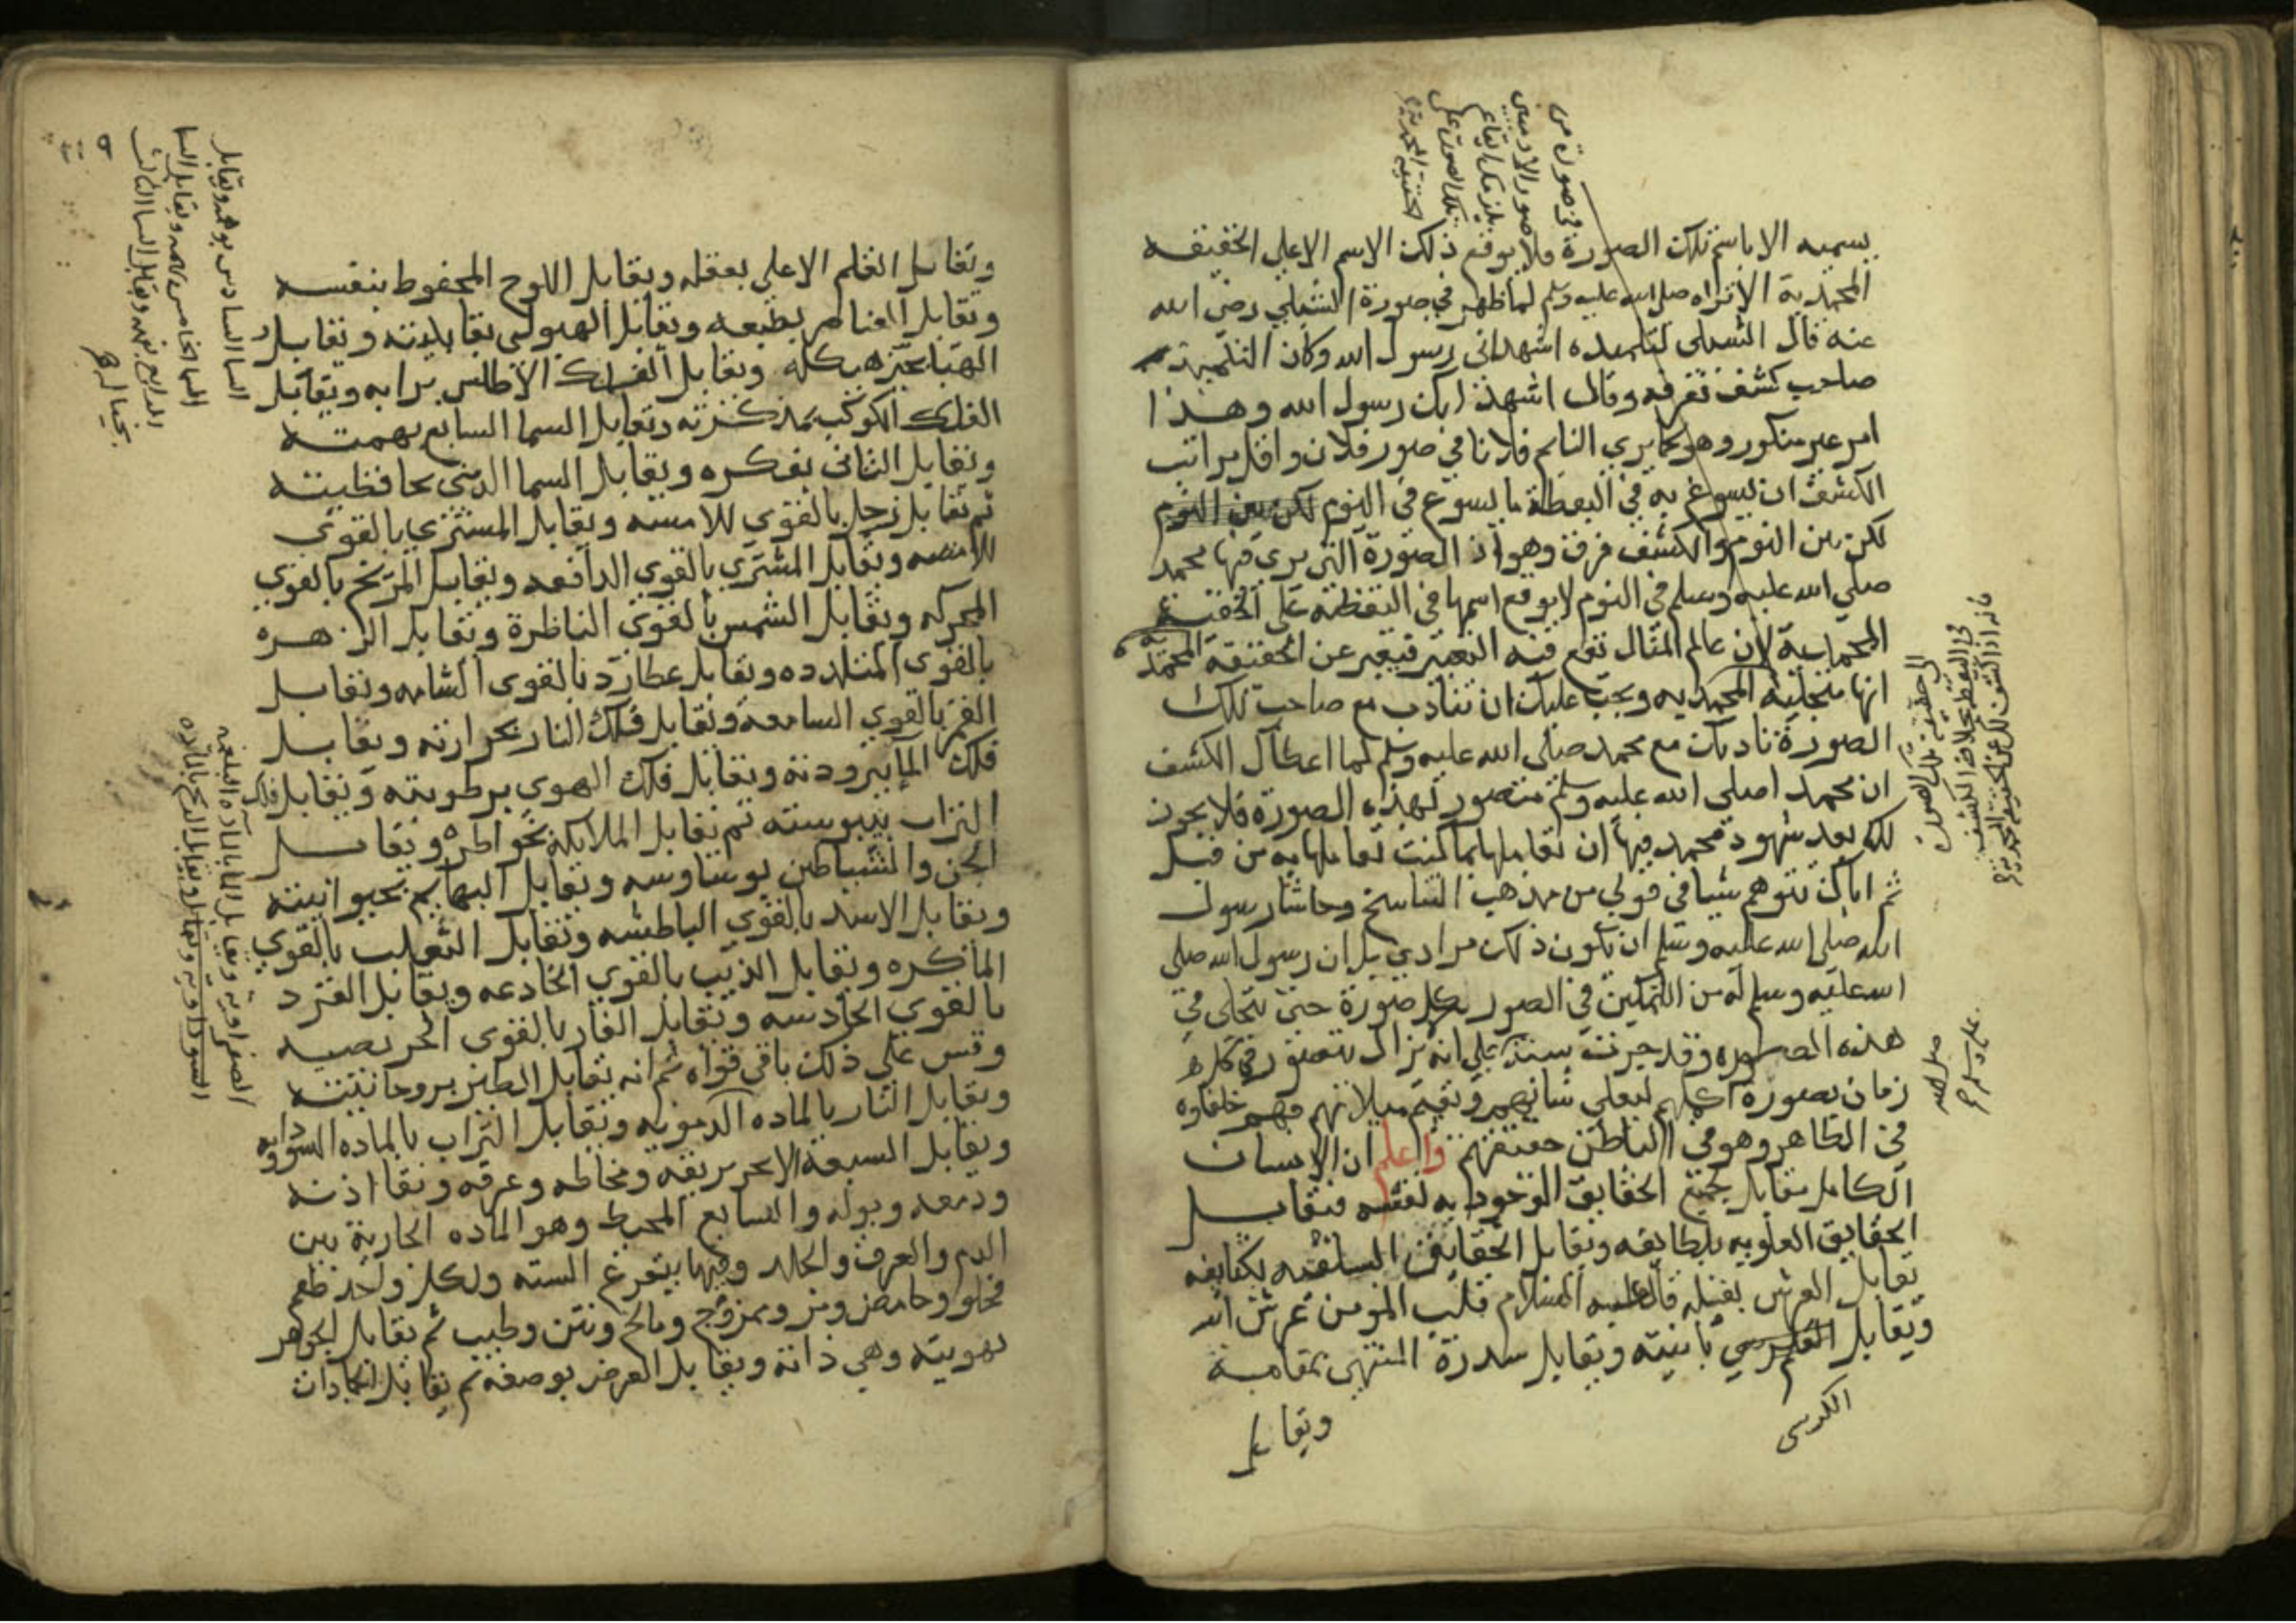 يسميه الا باسم تلك الصورة ولا يوقع ذلك الاسم الا على الحقيقه
المحمدية الا تراه صلى الله عليه وسلم لما ظهر في صورة الشبلي رضي الله
عنه قال الشبلى لتلميده اشهد انى رسول الله وكان التلميد
صاحب كشف فعرفه وقال اشهد انك رسول الله وهذا
امر غير منكور وهو كما يري النايم فلانا في صور فلان واقل مراتب
الكشف ان يسوغ به في اليقظة ما يسوغ في النوم لكن بين النوم
لكن بين النوم والكشف فرق وهو ان الصورة التي يري فيها محمد
صلي الله عليه وسلم في النوم لا يوقع اسمها في اليقظه على الحقيقة
المحمدية لان عالم المثال تقع فيه التعبير فيعبر عن الحقيقة المحمدية
انها متجليه المحمديه ويجب عليك ان تتادب مع صاحب تلك
الصورة تادبك مع محمد صلى الله عليه وسلم لما اعطاك الكشف
ان محمدا صلى الله عليه وسلم متصور لهذه الصورة فلا يجوز
لك بعد شهود محمد فيها ان تعاملها بما كنت تعاملها به من قبل
ثم اياك تتوهم شيا في قولي من مذهب التناسخ وحاشا رسول
الله صلى الله عليه وسلم ان تكون ذلك مرادي بل ان رسول الله صلى
الله عليه وسلم له من التمكين في الصور بكل صورة حتى يتجلى في
هذه الصوره وقد جرت سنته على انه يزال يتصور في كل
زمان بصورة اكملهم ليعلى شانهم ويقيم ميلانهم فهم خلفاوه
في الظاهر وهو في الباطن حقيقتهم واعلم ان الانسان
الكامل مقابل بجميع الحقايق الوجود به لنفسه فيقابل
الحقايق العلويه بلطايفه ويقابل الحقايق السلفيه بكثايفه
يقابل العرش بقلبه قال عليه السلام قلب المومن عرش الله
ويقابل الكرسي بانيته ويقابل سدرة المنتهى بمقامه
الكرسى
ويقابل
في صورة من
صور الادميين
يلزمك ايقاع
تلك الصورة على
الحقيقة المحمدية
الى حقيقة تلك الصورة
في اليقظة بخلاف الكشف
فانه اذا كشف لك عن الحقيقة المحمدية
صلى الله
عليه وسلم
٩
ويقابل القلم الاعلى بعقله ويقابل اللوح المحفوظ بنفسه
ويقابل العناصر بطبعه ويقابل الهيولى بقابليته ويقابل
الهبا بحيز هيكله ويقابل الفلك الاطلس برايه ويقابل
الفلك الكوكب بمدركته ويقابل السما السابع بهمته
ويقابل الثانى بفكره ويقابل السما الدنيى بحافظيته
ثم يقابل زحل بالقوي للامسه ويقابل المشتري بالقوي
للامسه ويقابل المشتري بالقوي الدافعه ويقابل المريخ بالقوي
المحركه ويقابل الشمس بالقوي الناظرة ويقابل الزهره
بالقوي المتلدده ويقابل عطارد بالقوى الشامه ويقابل
القمر بالقوي السامعه ويقابل فلك النار بحرارته ويقابل
فلك الما ببرودته ويقابل فلك الهوي برطوبته ويقابل فلك
التراب بيبوسته ثم يقابل الملايكة بخواطره ويقابل
الجن والشياطين بوساوسه ويقابل البهايم بحيوانيته
ويقابل الاسد بالقوي الباطشه ويقابل الثعلب بالقوي
الماكره ويقابل الذيب بالقوي الخادعه ويقابل القرد
بالقوي الحادسه ويقابل الفار بالقوي الحريصه
وقس على ذلك باقي قواه ثم انه يقابل الطير بروحانيته
ويقابل النار بالماده الدمويه ويقابل التراب بالماده السوداويه
ويقابل السبعة الابحر بريقه ومخاطه وعرقه ونقا اذنه
ودمعه وبوله والسابع المحيط وهو الماده الجارية بين
الدم والعرق والجلد وفيها يتفرع السته ولكل واحد طعم
فحلو وحامض ومر وممزوج ومالح ونتن وطيب ثم يقابل الجوهر
بهويته وهي ذاته ويقابل العرض بوصفه ثم يقابل الجمادات
السما السادس بوهمه ويقابل
السما الخامس بهمه ويقابل السما
الرابع بفهمه ويقابل السما الثالث
بخياله
الصفراوية ويقابل الما بالماده البلغميه
السوداوية ويقابل الريح بالماده